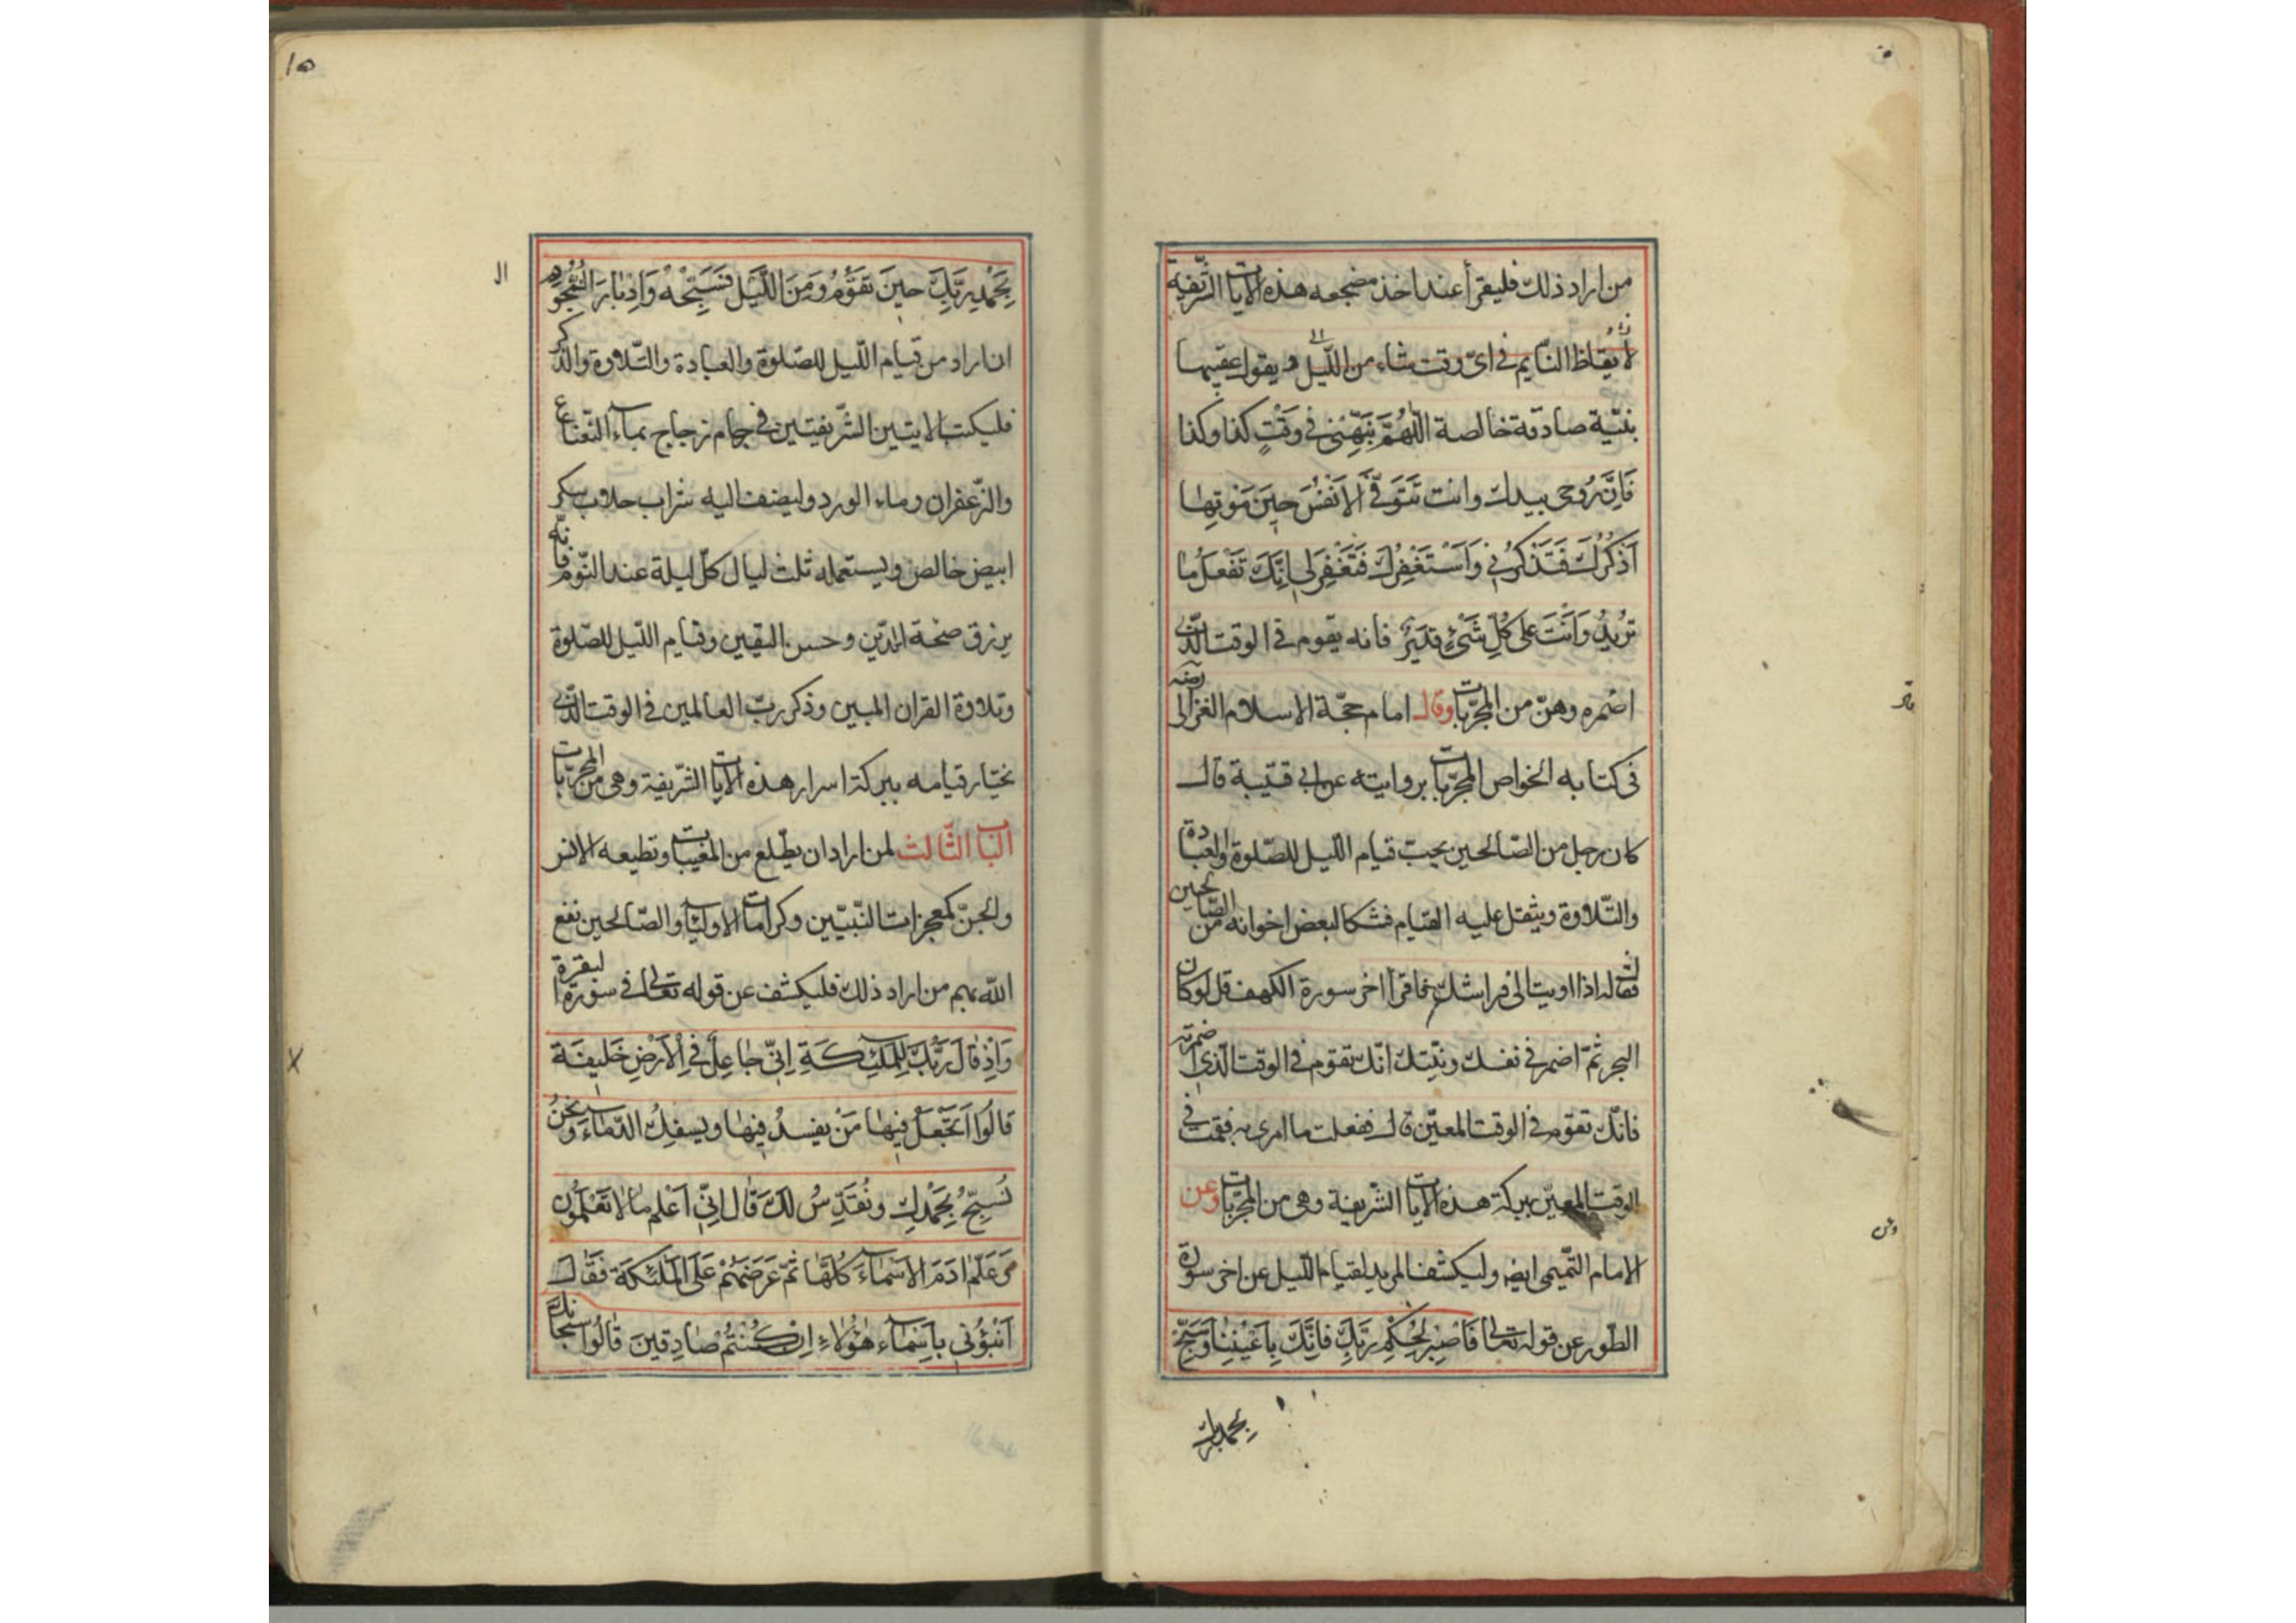 من اراد ذلك فليقرأ عند اخذ مضجعه هذه الايات الشريفة
لايقاظ النايم فى اىّ وقت شاء من اللّيل و يقول عقيبها
بنيّة صادقة خالصة اللّهُمَّ نَبِّهْنى فى وَقْتٍ كذا وكذا
فَاِنَّ رُوحى بيدك وانت تَتَوَفَّى الاَنْفُسَ حِينَ مَوْتِهٰا
اَذْكُرُكَ فَتَذْكُرُنى وَاَسْتَغْفِرُكَ فَتَغْفِرَلى اِنَّكَ تَفْعَلُ مٰا
تُرِيدُ وَاَنْتَ عَلى كُلِّ شَىْءٍ قَدِيرٌ فانه يقوم فى الوقت الّذى
اضمره وهنّ من المجرّبات وقال امام حجّة الاسلام الغزالى
فى كتابه الخواص المجرّبات بروايته عن ابى قتيبة قال
كان رجل من الصّالحين يحبّ قيام اللّيل للصّلوة والعبادة
والتّلاوة ويثقل عليه القيام فشكا لبعض اخوانه من الصّالحين
فقال له اذا اويت الى فراشك فاقرأ اخر سورة الكهف قل لو كان
البحر ثمّ اضمر فى نفسك ونيّتك انّك تقوم فى الوقت الّذى اضمرته
فانّك تقوم فى الوقت المعيّن قال ففعلت ما امرى به فقمت فى
الوقت المعيّن ببركة هذه الايات الشّريفة وهى من المجرّبات وعن
الامام التّميمى ايضا وليكشف المريد لقيام اللّيل عن اخر سورة
الطّور عن قوله تعالى فَاصْبِرْ لِحُكْمِ رَبِّكَ فَاِنَّكَ بِاَعْيُنِنٰا وَسَبِّحْ
بحمد ربك
١٥
بِحَمْدِ رَبِّكَ حينَ تَقُومُ وَمِنَ اللَّيْلِ فَسَبِّحْهُ وَاِدْبٰارَ النُّجُومِ
ان اراد من قيام اللّيل للصّلوة والعبادة والتّلاوة والذّكر
فليكتب الايتين الشّريفتين فى جام زجاج بماء النّعناع
والزّعفران وماء الورد وليضف اليه شراب جلاب سكر
ابيض خالص ويستعمله ثلث ليال كلّ ليلة عند النّوم فانّه
يرزق صحّة الدّين وحسن اليقين وقيام اللّيل للصّلوة
وتلاوة القران المبين وذكر ربّ العالمين فى الوقت الّذى
يختار قيامه ببركة اسرار هذه الايات الشّريفة وهى من المجرّبات
الباب الثّالث لمن اراد ان يطّلع من المغيبات وتطيعه الانس
والجنّ كمعجزات النّبيّين وكرامات الاولياء والصّالحين نفع
اللّه بهم من اراد ذلك فليكشف عن قوله تعالى فى سورة البقرة
وَاِذْ قٰالَ رَبُّكَ لِلْمَلٰئِكَةِ اِنّى جٰاعِلٌ فِى الْاَرْضِ خَليفَةً
قٰالُوا اَتَجْعَلُ فيهٰا مَنْ يُفْسِدُ فيهٰا ويسفِكُ الدّمٰاءَ وَنَحْنُ
نُسَبِّحُ بِحَمْدِكَ ونُقَدِّسُ لَكَ قٰالَ اِنّى اَعْلَم مٰا لٰا تَعْلَمُونَ
وَعَلَّمَ اٰدَمَ الاَسْمٰاءَ كُلَّهٰا ثمّ عَرَضَهُمْ عَلَى الْمَلٰئِكَة فَقٰالَ
اَنْبِؤُنى بِاَسْمٰاءِ هٰؤُلٰاءِ اِنْ كُنْتُمْ صٰادِقينَ قٰالُوا سُبْحٰانَكَ